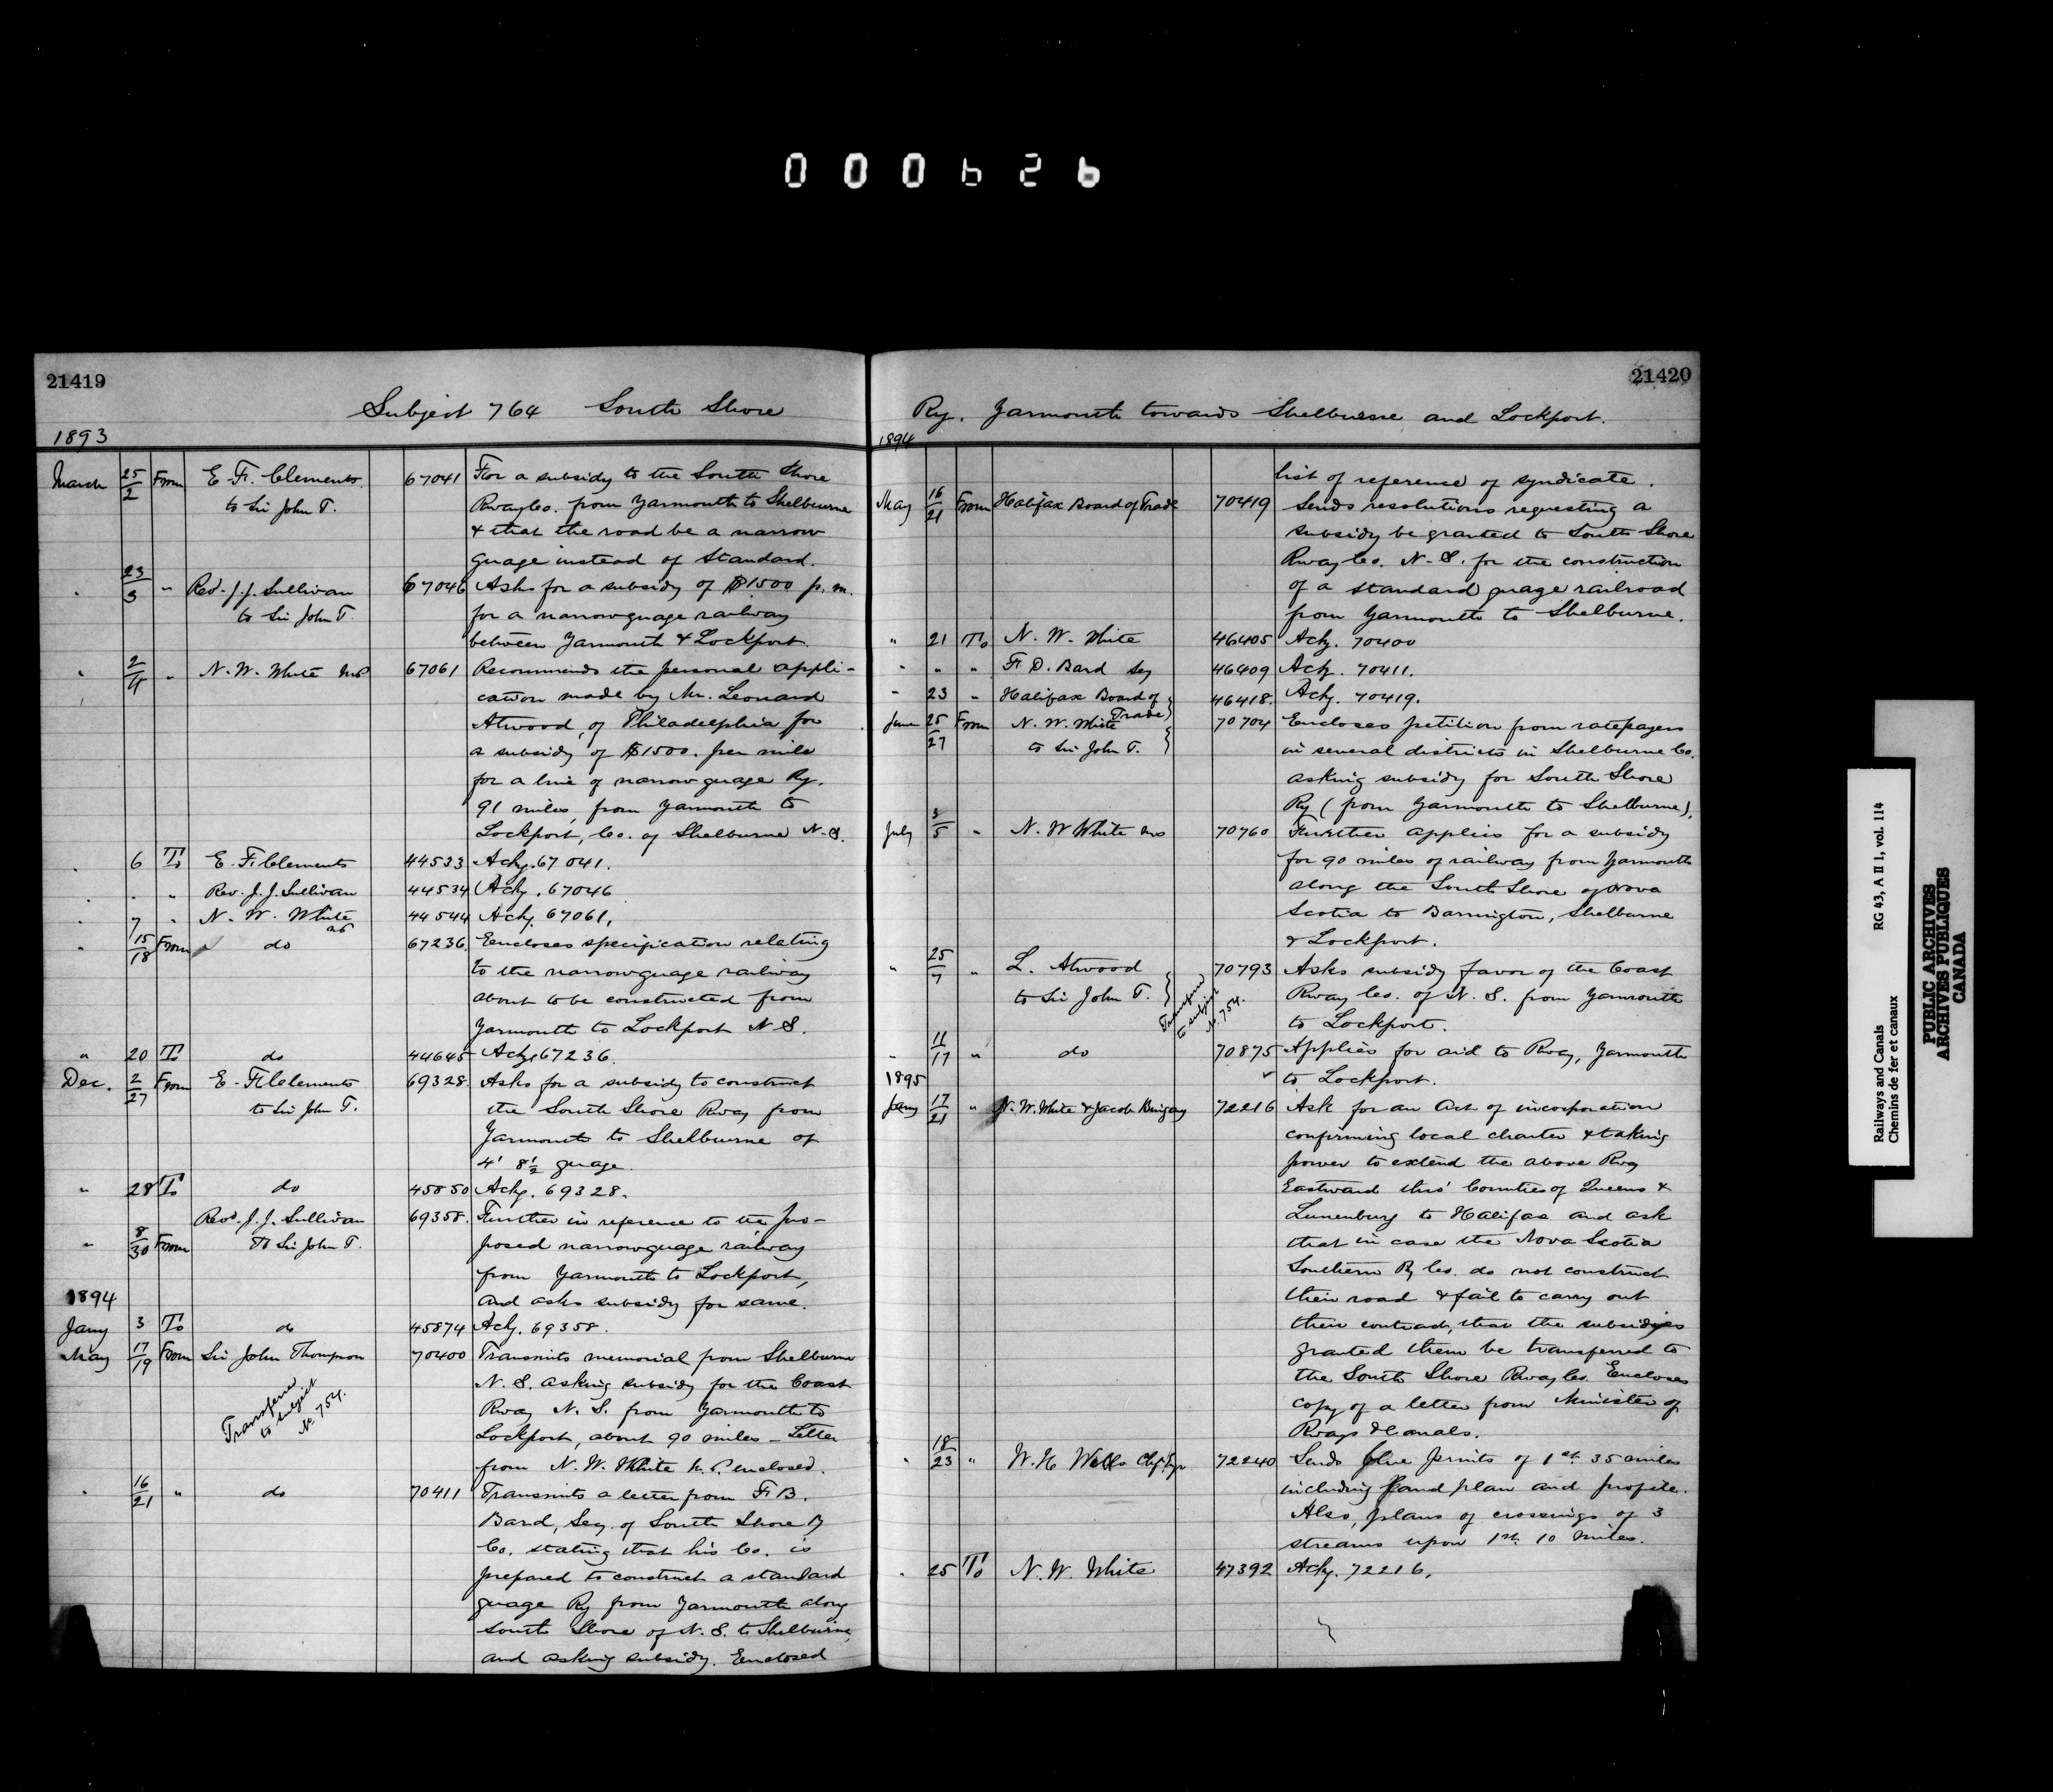 000626
21419
Subject 764 South Shore
1893
March 25/2 From E. F. Clements 67041 For a subsidy to the South Shore
to Sir John T. Rway Co. from Yarmouth to Shelburne
& that the road be a narrow
guage instead of Standard.
" 23/3 " Rev. J. J. Sullivan 67046 Asks for a subsidy of $1500 p. m.
to Sir John T. for a narrow guage railway
between Yarmouth & Lockport.
" 2/4 " N. W. White MP 67061 Recommends the personal appli-
cation made by Mr. Leonard
Atwood, of Philadelphia for
a subsidy of $1500. per mile
for a line of narrow guage Ry.
91 miles, from Yarmouth to
Lockport, Co. of Shelburne N.S.
" 6 To E. F. Clements 44533 Ackg. 67041.
" " " Rev. J. J. Sullivan 44534 Ackg. 67046
" 7 " N. W. White 44544 Ackg. 67061.
" 15/18 From do 67236 Encloses specification relating
to the narrow guage railway
about to be constructed from
Yarmouth to Lockport N.S.
" 20 To do 44645 Ackg 67236.
Dec. 2/27 From E. F. Clements 69328. Asks for a subsidy to construct
to Sir John T. the South Shore Rway from
Yarmouth to Shelburne of
4' 8½ guage.
" 28 To do 45850 Ackg. 69328.
Revd. J. J. Sullivan 69358. Further in reference to the pro-
" 8/30 From To Sir John T. posed narrow guage railway
from Yarmouth to Lockport,
and asks subsidy for same.
1894
Jany 3 To do 45874 Ackg. 69358.
May 17/19 From Sir John Thompson 70400 Transmits memorial from Shelburne
N. S. asking subsidy for the Coast
Transferred to subject No. 754. Rway N. S. from Yarmouth to
Lockport, about 90 miles - Letter
from N. W. White M.P. enclosed.
" 16/21 " do 70411 Transmits a letter from F. B.
Bard, Secy. of South Shore Ry
Co. stating that his Co. is
prepared to construct a standard
guage Ry from Yarmouth along
South Shore of N. S. to Shelburne,
and asking subsidy. Enclosed
21420
Ry. Yarmouth towards Shelburne and Lockport.
1894
list of reference of syndicate.
May 16/21 From Halifax Board of Trade 70419 Sends resolutions requesting a
subsidy be granted to South Shore
Rway Co. N. S. for the construction
of a standard guage railroad
from Yarmouth to Shelburne.
" 21 To N. W. White 46405 Ackg. 70400
" " " F. D. Bard Secy 46409 Ackg. 70411.
" 23 " Halifax Board of Trade 46418. Ackg. 70419.
June 25/27 From N. W. White 70704 Encloses petition from ratepayers
to Sir John T. in several districts in Shelburne Co.
asking subsidy for South Shore
Ry (from Yarmouth to Shelburne).
July 3/5 " N. W White 70760 Further applies for a subsidy
for 90 miles of railway from Yarmouth
along the South Shore of Nova
Scotia to Barrington, Shelburne
& Lockport.
" 25/7 " L. Atwood 70793 Asks subsidy favor of the Coast
to Sir John T. Transferred to subject No. 754. Rway Co. of N. S. from Yarmouth
to Lockport.
" 11/17 " do 70875 Applies for aid to Rway, Yarmouth
1895 to Lockport.
Jany 17/21 " N. W. White & Jacob Bingay 72216 Ask for an Act of incorporation
confirming local charter & taking
power to extend the above Rway
Eastward thro' Counties of Queens &
Lunenburg to Halifax and ask
that in case the Nova Scotia
Southern Ry Co. do not construct
their road & fail to carry out
their contract, that the subsidies
granted them be transferred to
the South Shore Rway Co. Encloses
copy of a letter from Minister of
Rways & Canals.
" 18/23 " W. H. Wells Chf. Engr 72240 Sends blue prints of 1st 35 miles
including land plan and profile.
Also, plans of crossings of 3
streams upon 1st 10 miles.
" 25 To N. W. White 47392 Ackg. 72216.
Railways and Canals RG 43, A II 1, vol. 114
Chemins de fer et canaux
PUBLIC ARCHIVES
ARCHIVES PUBLIQUES
CANADA